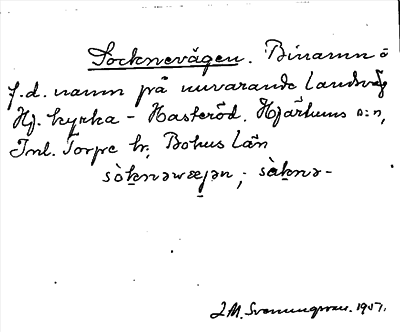 Socknevägen. Binamn o
f.d. namn på nuvarande landsväg
Hj. kyrka - Hasteröd. Hjärtums s:n,
Inl. Torpe hr, Bohus län
sòknəwæjən; sòknə-
J.M. Svenningsson. 1907.